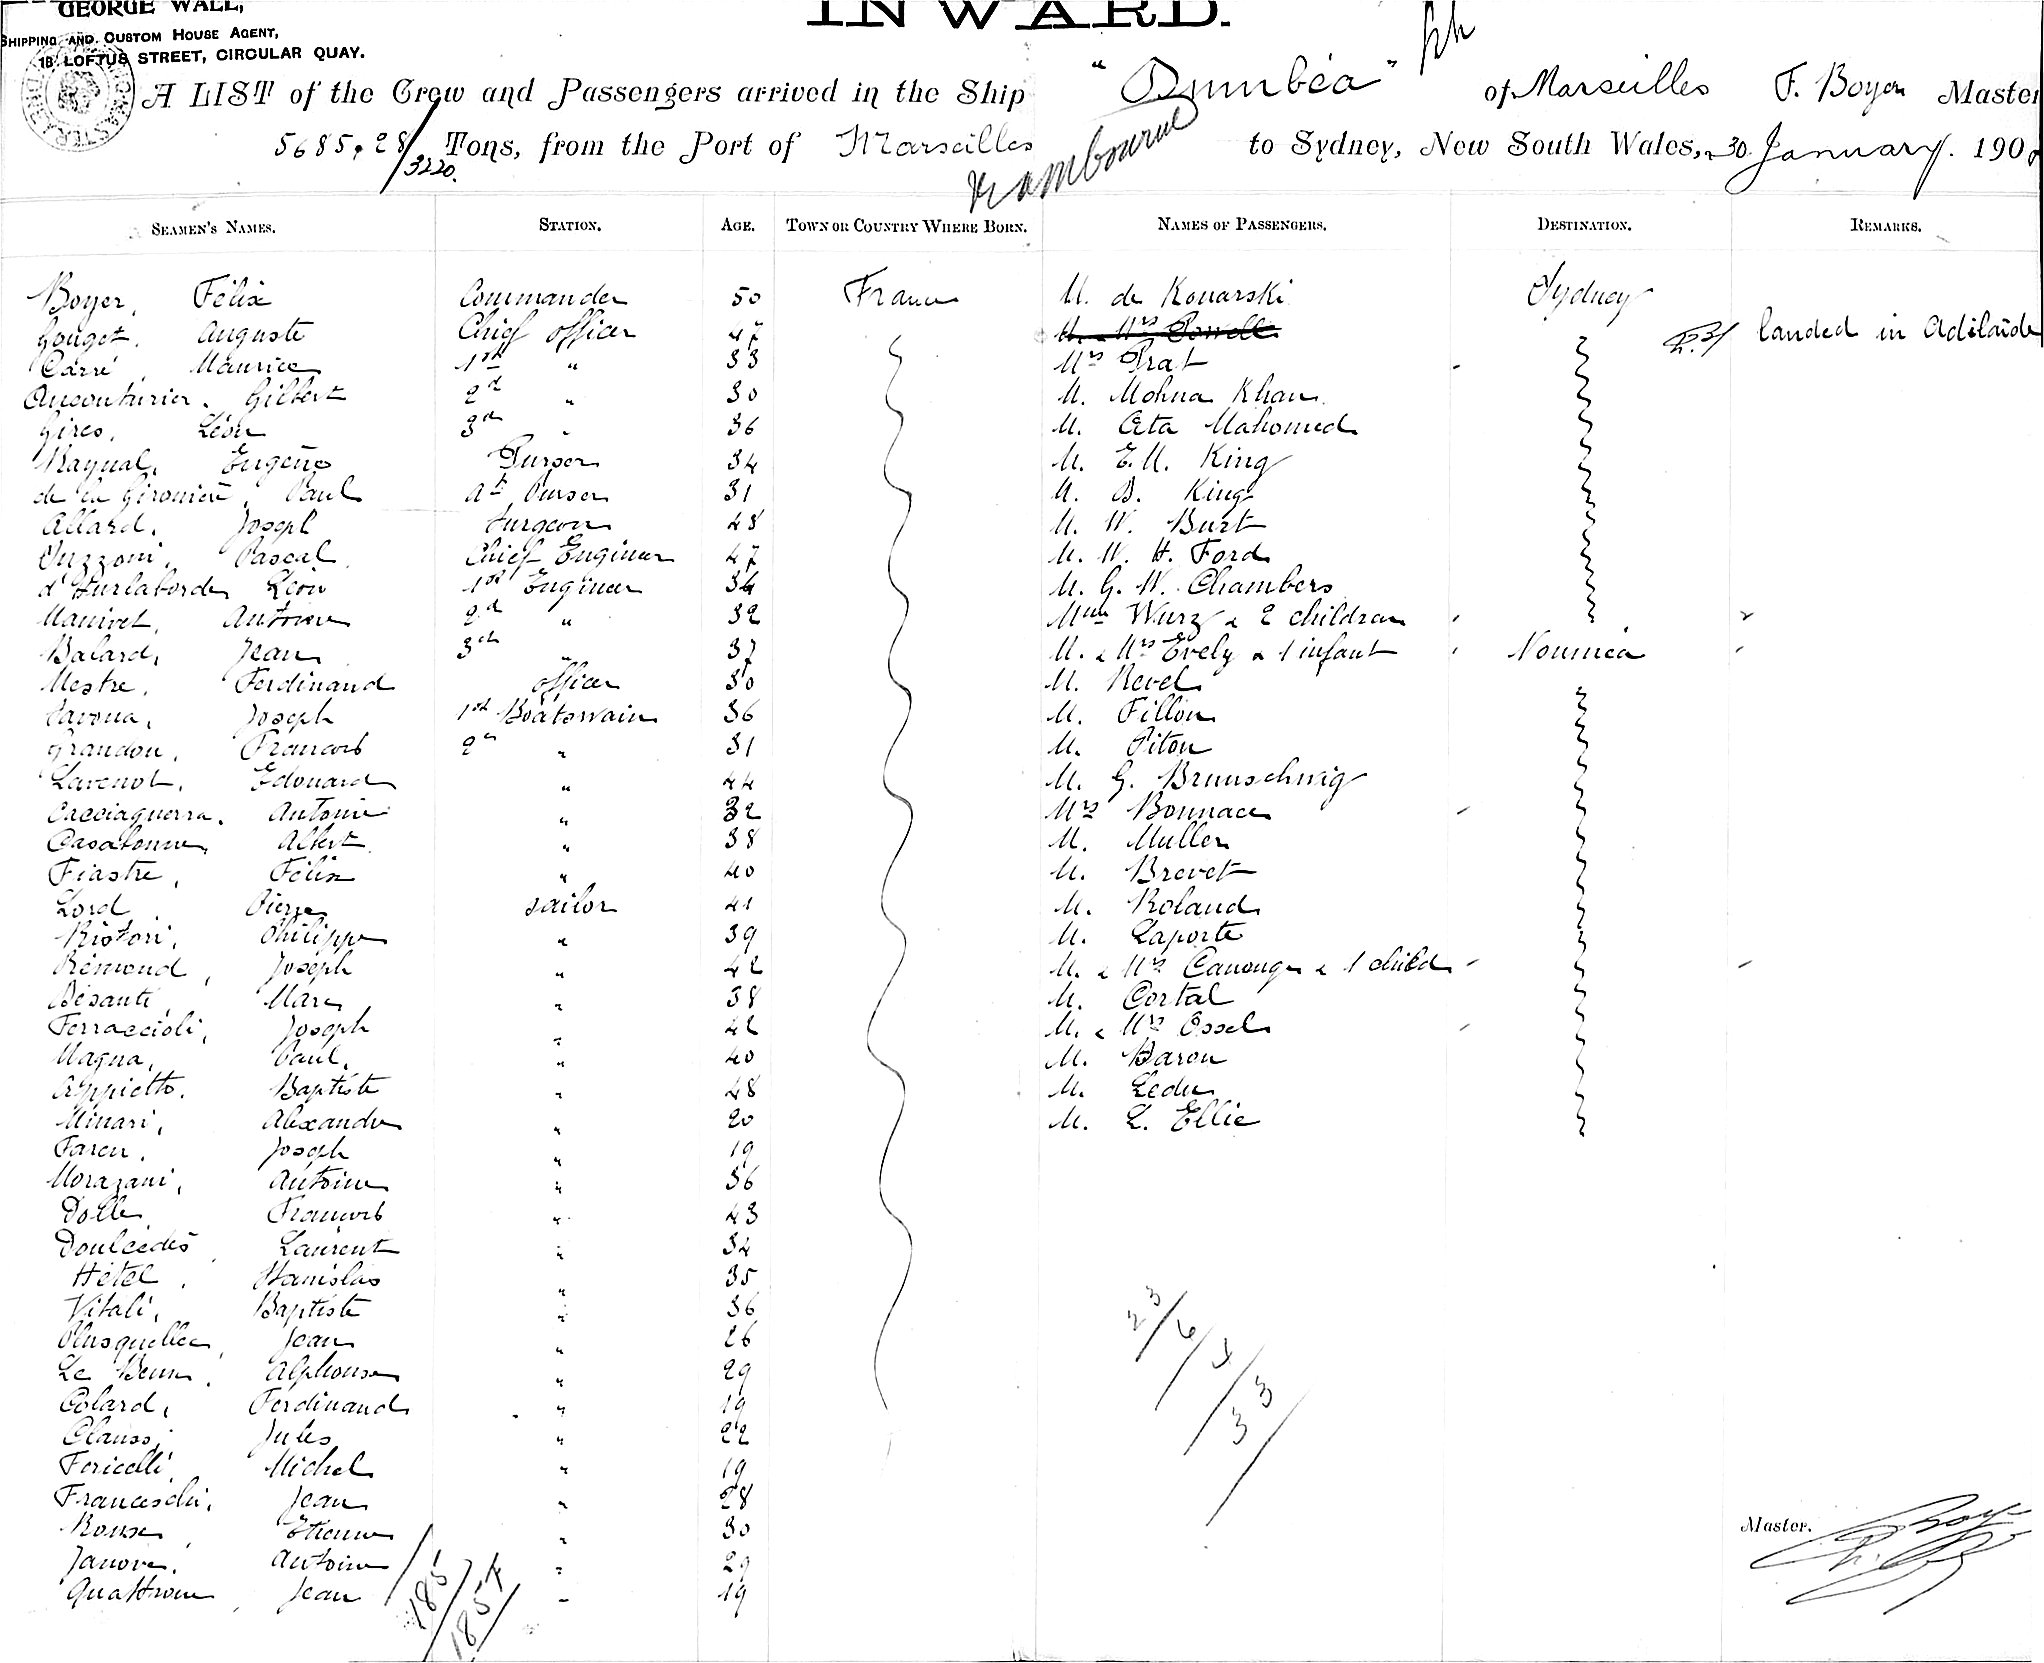 GEORGE WALL,
SHIPPING AND CUSTOM HOUSE AGENT,
18 LOFTUS STREET, CIRCULAR QUAY.
INWARD.
A LIST of the Crew and Passengers arrived in the Ship "Dumbéa" of Marseilles F. Boyer Master
5685,28/3220. Tons, from the Port of Marseilles to Sydney, New South Wales, 30 January. 190
SEAMEN'S NAMES. STATION. AGE. TOWN OR COUNTRY WHERE BORN. NAMES OF PASSENGERS. DESTINATION. REMARKS.
Boyer, Félix Commander 50 France M. de Konarski Sydney
Gouget, Auguste Chief officer 47 M. Mrs Powell landed in Adelaide
Carré, Maurice 1st " 33 Mrs Prat
Aucouturier, Gilbert 2d " 30 M. Mohna Khan
Gires, Léon 3d " 36 M. Ata Mahomed
Raynal, Eugène Purser 34 M. E.M. King
de la Gironière, Paul At Purser 31 M. B. King
Allard, Joseph Surgeon 48 M. W. Burt
Suzzoni, Pascal Chief Engineer 47 M. W. H. Ford
d'Hurlaborde Léon 1st Engineer 34 M. G. W. Chambers
Manivet, Antoine 2d " 32 Mme Wurz & 2 children
Balard, Jean 3d " 37 M. & Mrs Evely & 1 infant Nouméa
Mestre, Ferdinand officer 30 M. Revel
Savona, Joseph 1st Boatswain 36 M. Fillon
Grandou, Francois 2d " 31 M. Piton
Lavenot, Edouard " 44 M. G. Brunschwig
Cacciaguerra, Antoine " 32 Mrs Bonnace
Casabonne, Albert " 38 M. Muller
Fiastre, Félix " 40 M. Brevet
Lord Pierre sailor 41 M. Roland
Ristori, Philippe " 39 M. Laporte
Rémond, Joseph " 42 M. & Mrs Canonge & 1 child
Désanti, Marc " 38 M. Cortal
Ferraccioli, Joseph " 42 M. & Mrs Ossel
Magna, Paul " 40 M. Baron
Appietto, Baptiste " 48 M. Ledu
Minari, Alexandre " 20 M. L. Ellie
Faren, Joseph " 19
Morazani, Antoine " 36
Dolle Francois " 43
Doulcédès, Laurent " 34
Hétel, Stanislas " 35
Vitali, Baptiste " 36
Plusquellec, Jean " 26
Le Beun, Alphonse " 29
Colard, Ferdinand " 19
Clauss, Jules " 22
Foricelli, Michel " 19
Franceschi, Jean " 28
Roux, Etienne " 30
Janovi, Antoine " 29
Quattrone, Jean " 19
23/6/4/33
185/185+
Master.